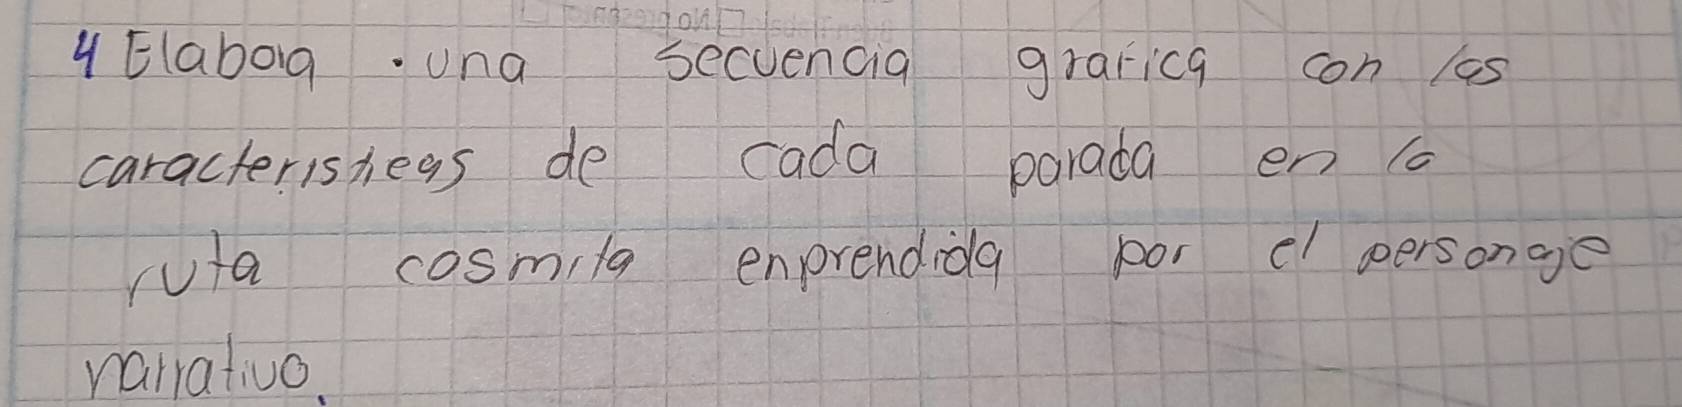 4 Elabora . una secuencia grafica con las
caracteristicas de cada parada en la
ruta cosmita enprendida por el personaje
narrativo.